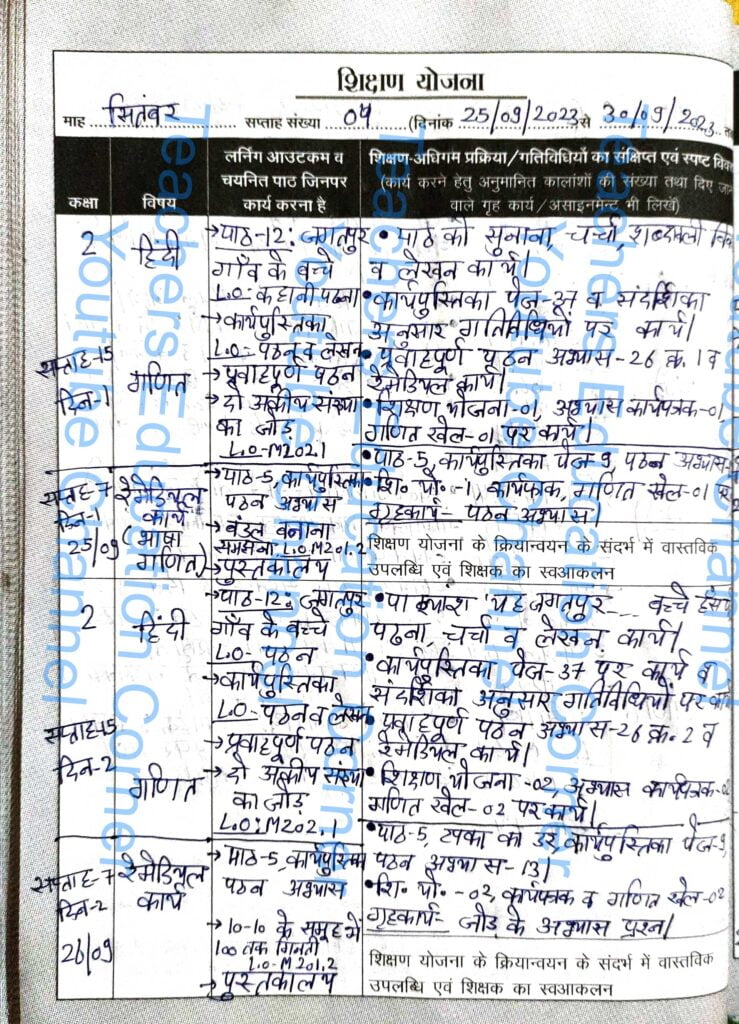 शिक्षण योजना
माह सितंबर सप्ताह संख्या 04 (दिनांक 25/09/2023 से 30/09/2023 तक
कक्षा
विषय
लर्निंग आउटकम व
चयनित पाठ जिनपर
कार्य करना है
शिक्षण-अधिगम प्रक्रिया/गतिविधियों का संक्षिप्त एवं स्पष्ट
(कार्य करने हेतु अनुमानित कालांशों की संख्या तथा दिए
वाले गृह कार्य/असाइनमेन्ट भी लिखें)
2
हिंदी
सप्ताह-15
दिन-1
गणित
→पाठ-12: जगतपुर
गाँव के बच्चे
L.O: कहानी पढना
→कार्यपुस्तिका
L.O:- पठन व लेखन
→प्रवाहपूर्ण पठन
→दो अंकीय संख्या
का जोड़
L.O-M202.1
• पाठ को सुनाना, चर्चा,
व लेखन कार्य।
•कार्यपुस्तिका पेज-37 व संदर्शिका
अनुसार गतिविधियों पर कार्य।
• प्रवाहपूर्ण पठन अभ्यास-26 क्र. 1 व
रेमेडियल कार्य।
•शिक्षण योजना-01, अभ्यास कार्यपत्रक-01,
गणित खेल-01 पर कार्य।
सप्ताह-7
दिन-1
25/09
रेमेडियल
कार्य
(भाषा
गणित)
→पाठ-5, कार्यपुस्तिका
पठन अभ्यास
→बंडल बनाना
समझना L.O.M201.2
→पुस्तकालय
•पाठ-5, कार्यपुस्तिका पेज-9, पठन अभ्यास-
•शि० यो० -1, कार्यपत्रक, गणित खेल-01
गृहकार्य- पठन अभ्यास।
शिक्षण योजना के क्रियान्वयन के संदर्भ में वास्तविक
उपलब्धि एवं शिक्षक का स्वआकलन
2
हिंदी
सप्ताह-15
दिन-2
गणित
→पाठ-12: जगतपुर
गाँव के बच्चे
L.O- पठन
→कार्यपुस्तिका
L.O- पठन व लेखन
→प्रवाहपूर्ण पठन
→दो अंकीय संख्या
का जोड़
L.O:M202.1
• पाठ्यांश 'यह जगतपुर--- बच्चे
पढना, चर्चा व लेखन कार्य।
•कार्यपुस्तिका पेज-37 पर कार्य व
संदर्शिका अनुसार गतिविधियों पर
• प्रवाहपूर्ण पठन अभ्यास-26 क्र. 2 व
रेमेडियल कार्य।
•शिक्षण योजना -02, अभ्यास कार्यपत्रक-02
गणित खेल-02 पर कार्य।
सप्ताह-7
दिन-2
26/09
रेमेडियल
कार्य
→ पाठ-5, कार्यपुस्तिका
पठन अभ्यास
→10-10 के समूह में
100 तक गिनती
L.O-M201.2
→पुस्तकालय
•पाठ-5, टपका का डर, कार्यपुस्तिका पेज-9,
पठन अभ्यास-13।
•शि० यो० -02, कार्यपत्रक व गणित खेल-02
गृहकार्य- जोड़ के अभ्यास प्रश्न।
शिक्षण योजना के क्रियान्वयन के संदर्भ में वास्तविक
उपलब्धि एवं शिक्षक का स्वआकलन
Teachers Education Corner
Youtube Channel
Teachers Education Corner
Youtube Channel
Teachers Education Corner
Youtube Channel